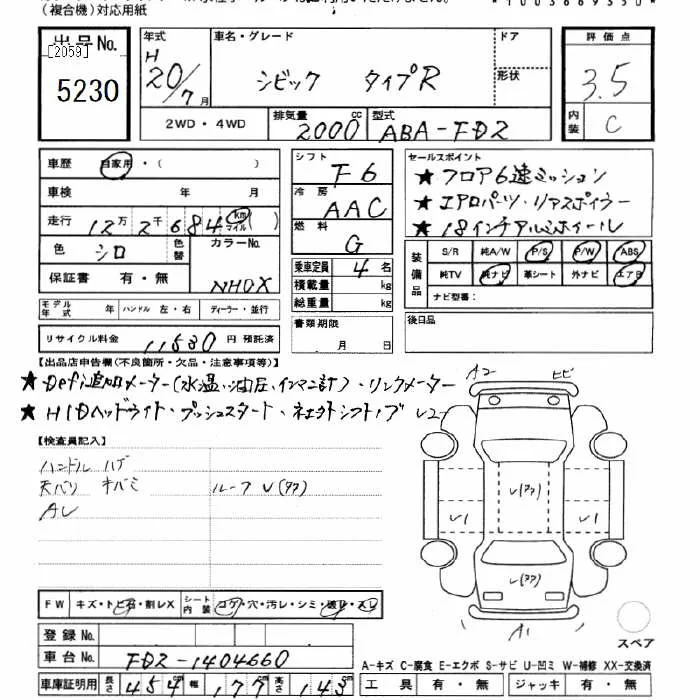 (複合機)対応用紙
*1003669350*
出品No.
[2059]
5230
年式 H 20/7月
車名・グレード
シビック タイプR
ドア
形状
評価点
3.5
内装 C
2WD・4WD
排気量 2000 cc
型式 ABA-FD2
車歴 自家用・( )
車検 年 月
走行 12万2千684 km マイル ( )
色 シロ 色替 カラーNo. NH0X
保証書 有・無
モデル年式 年 ハンドル 左・右 ディーラー・並行
リサイクル料金 11530 円 預託済
シフト F6
冷房 AAC
燃料 G
乗車定員 4 名
積載量 kg
総重量 kg
書類期限 月 日
セールスポイント
★ フロア6速ミッション
★ エアロパーツ・リアスポイラー
★ 18インチアルミホイール
装備品 S/R 純A/W P/S P/W ABS
純TV 純ナビ 革シート 外ナビ エアB
ナビ型番:
後日品
【出品店申告欄(不良箇所・欠品・注意事項等)】
★ Defi追加メーター(水温、油圧、インマニ計)・リンクメーター
★ HIDヘッドライト・プッシュスタート・
【検査員記入】
ハンドル ハゲ
天バリ キバミ ルーフ U(タタ)
AU
A2 ヒビ
U(タタ)
U1 U1
U(タタ)
A1
スペア
FW キズ・トビ石・割レX シート内装 コゲ・穴・汚レ・シミ・破レ・スレ
登録No.
車台No. FD2-1404660
車庫証明用 長さ 454cm 幅 177cm 高さ 143cm
A-キズ C-腐食 E-エクボ S-サビ U-凹ミ W-補修 XX-交換済
工具 有・無 ジャッキ 有・無